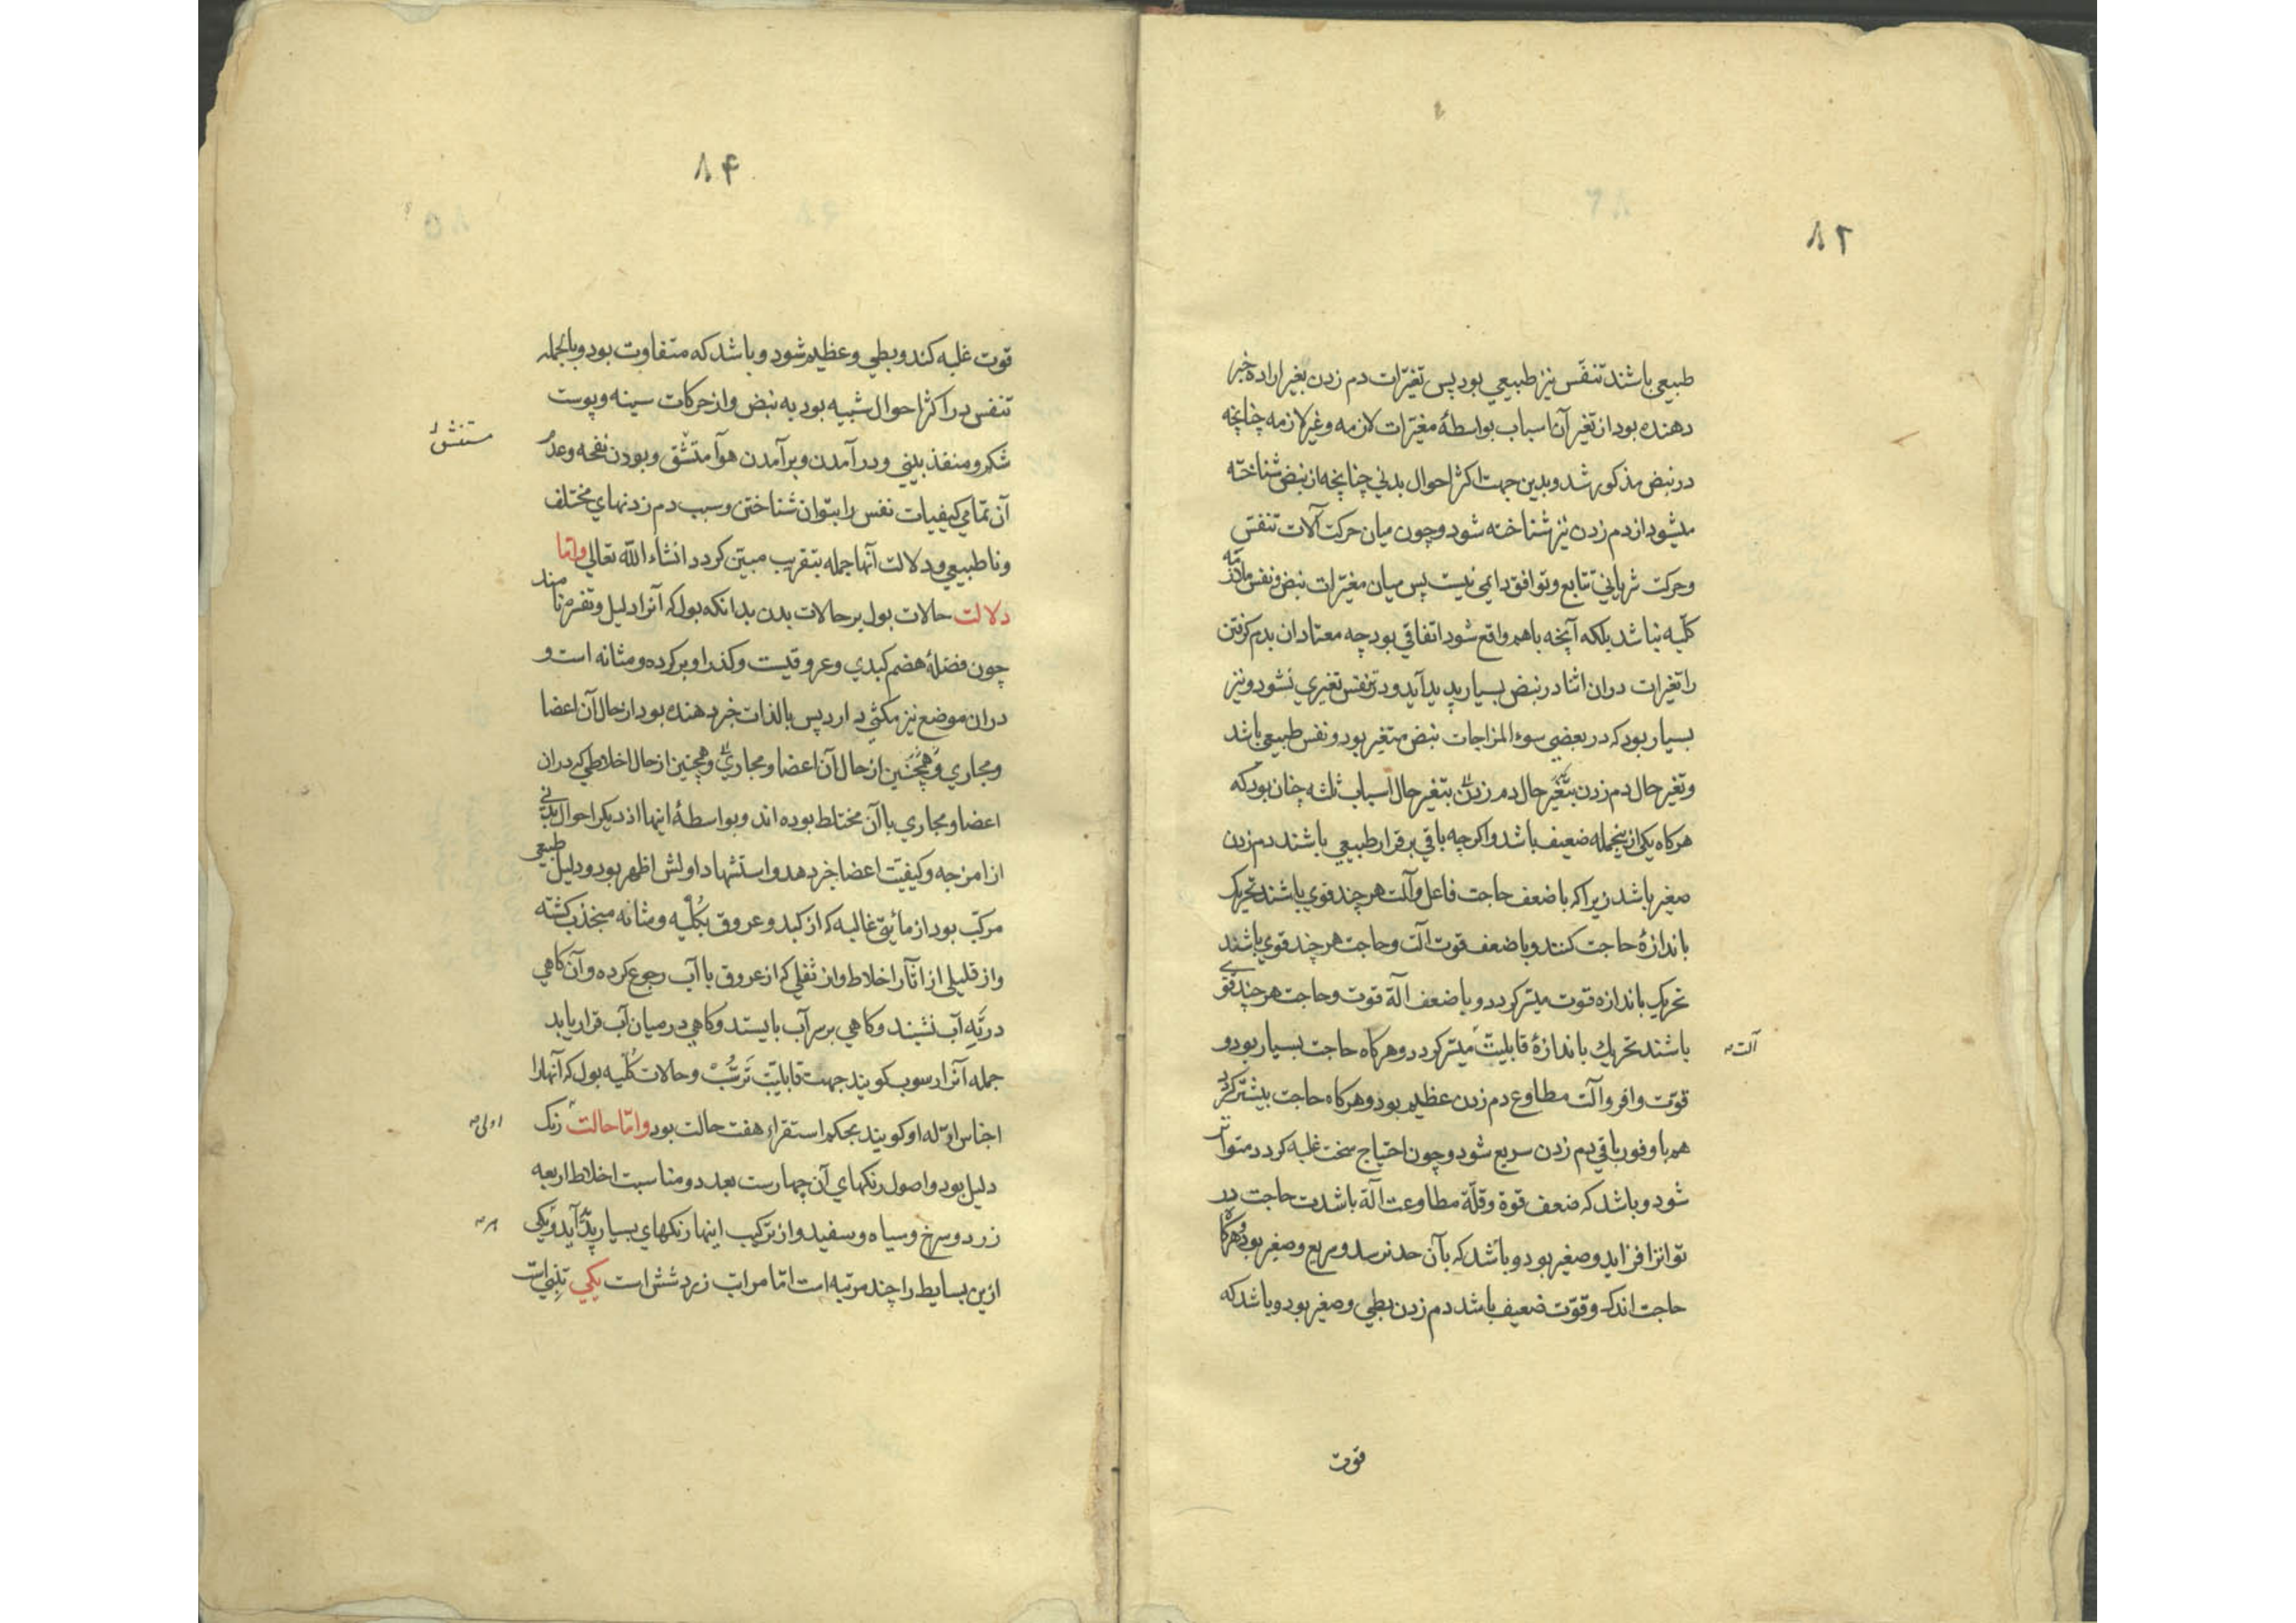 ۸۲
طبیعی باشند تنفّس نیز طبیعی بود پس تغیّرات دم زدن بغیر اراده خبر
دهنده بود از تغیر آن اسباب بواسطهٔ مغیّرات لازمه و غیر لازمه چنانچه
در نبض مذکور شد و بدین جهت اکثر احوال بدنی چنانچه از نبض شناخته
میشود از دم زدن نیز شناخته شود و چون میان حرکت آلات تنفس
و حرکت شریانی تتابع و توافق دایمی نیست پس میان مغیّرات نبض و نفس ملازمه
کلّیه نباشد بلکه آنچه باهم واقع شود اتفاقی بود چه معتادان بدم کرفتن
را تغیرات دران اثنا در نبض بسیار پدید آید و در تنفس تغیری نشود و نیز
بسیار بود که در بعضی سوء المزاجات نبض متغیر بود و نفس طبیعی باشد
و تغیر حال دم زدن بتغیر حال دم زدن بتغیر حال اسباب ثلثه چنان بود که
هرکاه یکی ازینجمله ضعیف باشد و اکرچه باقی برقرار طبیعی باشند دم زدن
صغیر باشد زیرا که با ضعف حاجت فاعل و آلت هر چند قوی باشند تحریک
باندازهٔ حاجت کنند و با ضعف قوت آلت و حاجت هر چند قوی باشند
تحریک باندازه قوت میسّر کردد و با ضعف آلة قوت و حاجت هر چند قوی
باشند تحریک باندازهٔ قابلیت میسّر کردد و هرکاه حاجت بسیار بود و
آلت
قوّت وافر و آلت مطاوع دم زدن عظیم بود و هرکاه حاجت بیشتر کردد
هم با وفور باقی دم زدن سریع شود و چون احتیاج سخت غلبه کردد متواتر
شود و باشد که ضعف قوة و قلّة مطاوعت آلة باشدت حاجت در
تواتر افزاید و صغیر بود و باشد که بآن حد نرسد و سریع و صغیر بود و هرکاه
حاجت اندک و قوّت ضعیف باشد دم زدن بطی و صغیر بود و باشد که
قوت
۸۴
قوت غلبه کند و بطی و عظیم شود و باشد که متفاوت بود و بالجمله
تنفس در اکثر احوال شبیه بود به نبض و از حرکات سینه و پوست
شکم و منفذ بینی و در آمدن و برآمدن هوآ متشّق و بودن نفحه و عدم
مستنشق
آن تمامی کیفیات نفس را بتوان شناختن و سبب دم زدنهای مختلف
و ناطبیعی و دلالت آنها جمله بتقریب مبیّن کردد انشاء الله تعالی و امّا
دلالت حالات بول بر حالات بدن بدانکه بول که آنرا دلیل و تفسره نامند
چون فضلهٔ هضم کبدی و عروقیست و کذر او بر کرده و مثانه است و
دران موضع نیز مکثی دارد پس بالذات خبر دهنده بود از حال آن اعضا
و مجاری و همچنین از حال آن اعضا و مجاری و همچنین از حال اخلاطی که دران
اعضا و مجاری با آن مختلط بوده اند و بواسطهٔ اینها از دیکر احوال بدنی
از امزجه و کیفیّت اعضا خبر دهد و استشهاد اولش اظهر بود و دلیل طبیعی
مرکّب بود از مائیّتی غالبه که از کبد و عروق بکُلیه و مثانه منجذب کشته
و از قلیلی از آثار اخلاط و از ثفلی که از عروق با آب رجوع کرده و آن کاهی
در تَهِ آب نشیند و کاهی بر سر آب بایستد و کاهی در میان آب قرار یابد
جمله آنرا رسوب کویند جهت قابلیّت تَرَسُّبْ و حالات کُلّیه بول که آنها را
اجناس اوّله او کویند بحکم استقراء هفت حالت بود و امّا حالت رنک
اولی
دلیل بود و اصول رنکهای آن چهارست بعدد و مناسبت اخلاط اربعه
زرد و سرخ و سیاه و سفید و از ترکیب اینها رنکهای بسیار پدید آید و یکی
هر
ازین بسایط را چند مرتبه است امّا مراتب زرد شش است یکی تِبنی است